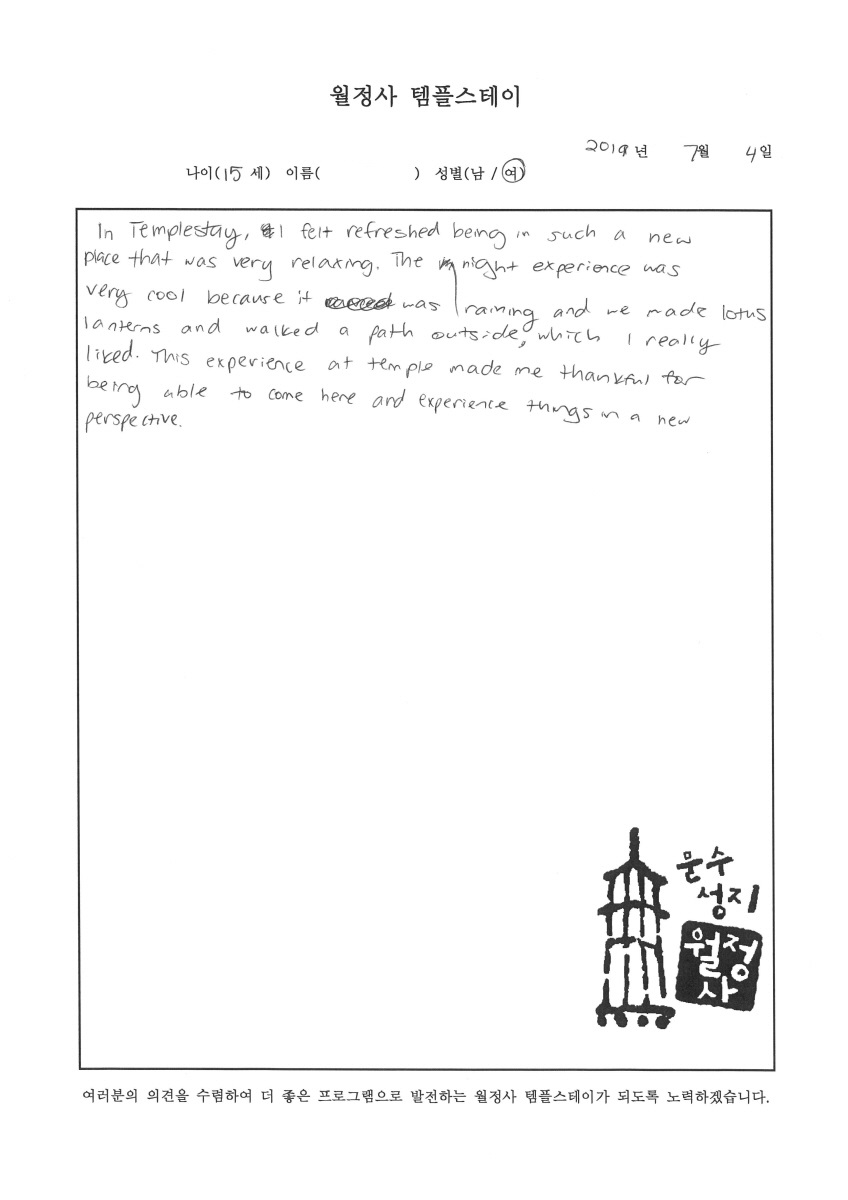 월정사 템플스테이
2019년 7월 4일
나이(15 세) 이름( ) 성별(남 / 여)
In Templestay, I felt refreshed being in such a new
place that was very relaxing. The night experience was
very cool because it was raining and we made lotus
lanterns and walked a path outside, which I really
liked. This experience at temple made me thankful for
being able to come here and experience things in a new
perspective.
문수
성지
월정
사
여러분의 의견을 수렴하여 더 좋은 프로그램으로 발전하는 월정사 템플스테이가 되도록 노력하겠습니다.